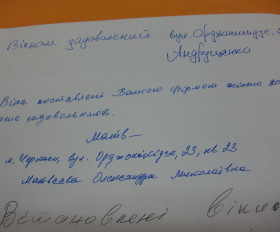 Вікном задоволений вул. Орджонікідзе
Андрущенко
Вікна поставлені Вашою фірмою якісно
задовольняють.
м. Черкаси, вул. Орджонікідзе, 23, кв 23
Матвєєва Олександра Миколаївна
Встановлені вікна